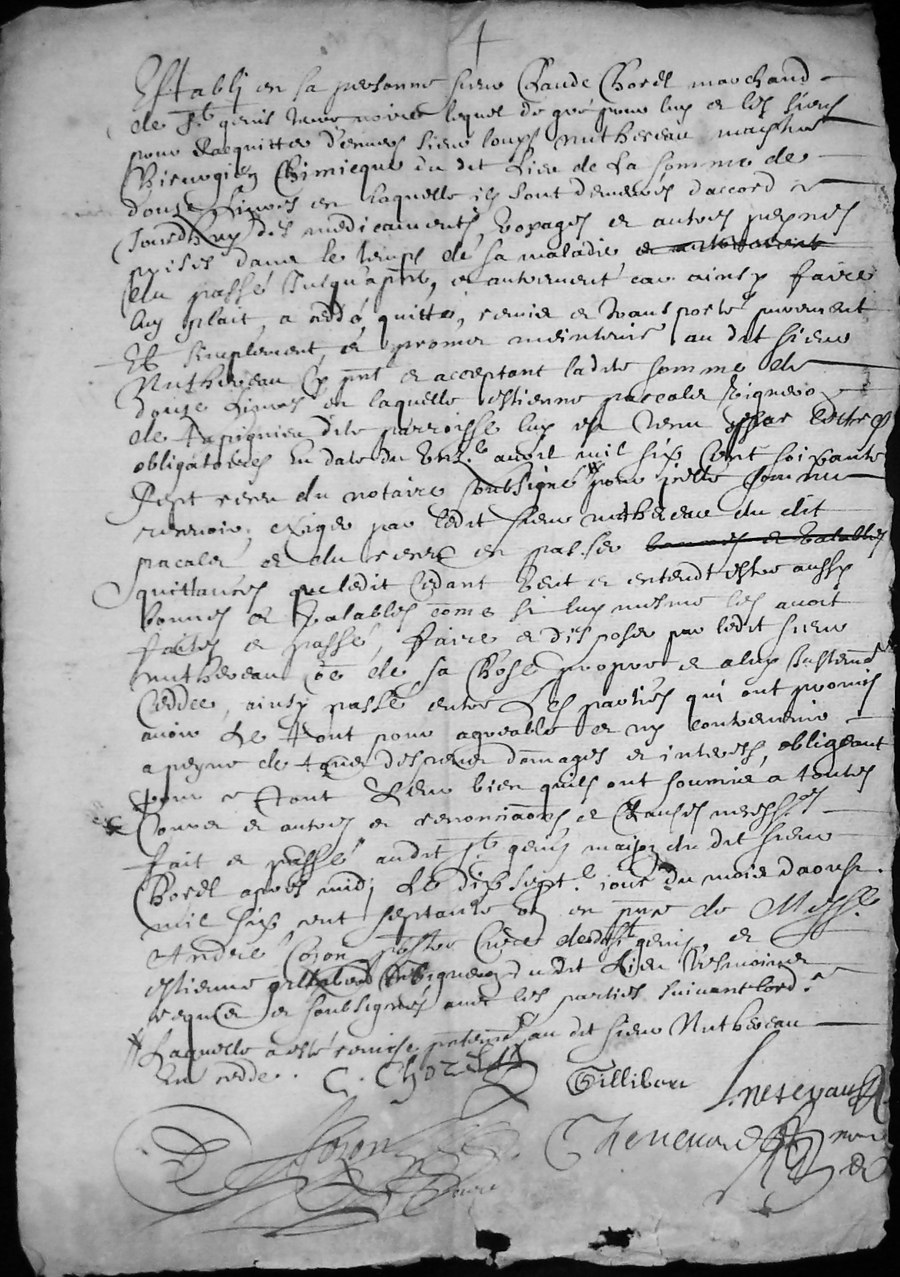 Establj en sa personne sieur Claude Chorel marchand
de St genis terre noire lequel de gré pour luy et les siens
pour s'acquitter d'envers sieur Louys Mithereau maistre
Chirurgien Chimicque du dit lieu de la somme de
douze livres en laquelle ils sont demeures d'accord
des medicaments, voyages et autres peynes
prises dans le temps de sa maladie et
du passé jusqu'a pnt, et autrement car ainsy faire
luy plait, a ceddé, quitté, remis et transporté purement
et simplement, et promet meintenir au dit sieur
Mithereau cy pnt et acceptant ladite somme de
douze livres en laquelle estienne paccalet vigneron
de dite parroisse luy est tenu par lettres
obligatoires en date du avril mil six cent soixante
sept receu du notaire soubsigné pour jcelle somme
recevoir, exiger par ledit sieur Mithereau du dit
pacalet et du receu en passer
quittances que ledit cedant veut et entend estre aussy
bonnes et valables come si luy mesme les avoit
faites et passé, faire et disposer par ledit sieur
Mithereau co͞e de sa chose propre et a luy
ceddee, ainsy passé entre les parties qui ont promis
avoir le tout pour agreable et ny contrevenir
a peyne de tous despens domages et interest, obligeant
pour ce tout leur bien quils ont soumis a toutes
Cours et autres et renonciaons et clauses necess.res
fait et passé audit St genis maison du dit sieur
Chorel apres midj le dix sept.e jour du mois daoust
mil six cent septante un en pnce de Messe
André Cozon prestre Curé dudt St genis, et
estienne gillibert vigneron du dit lieu tesmoins
requis et soubsignés avec les parties suivant lord.e
laquelle a esté remise au dit sieur Mithereau
C. Chorel Gillibert
Cozon Thevenard